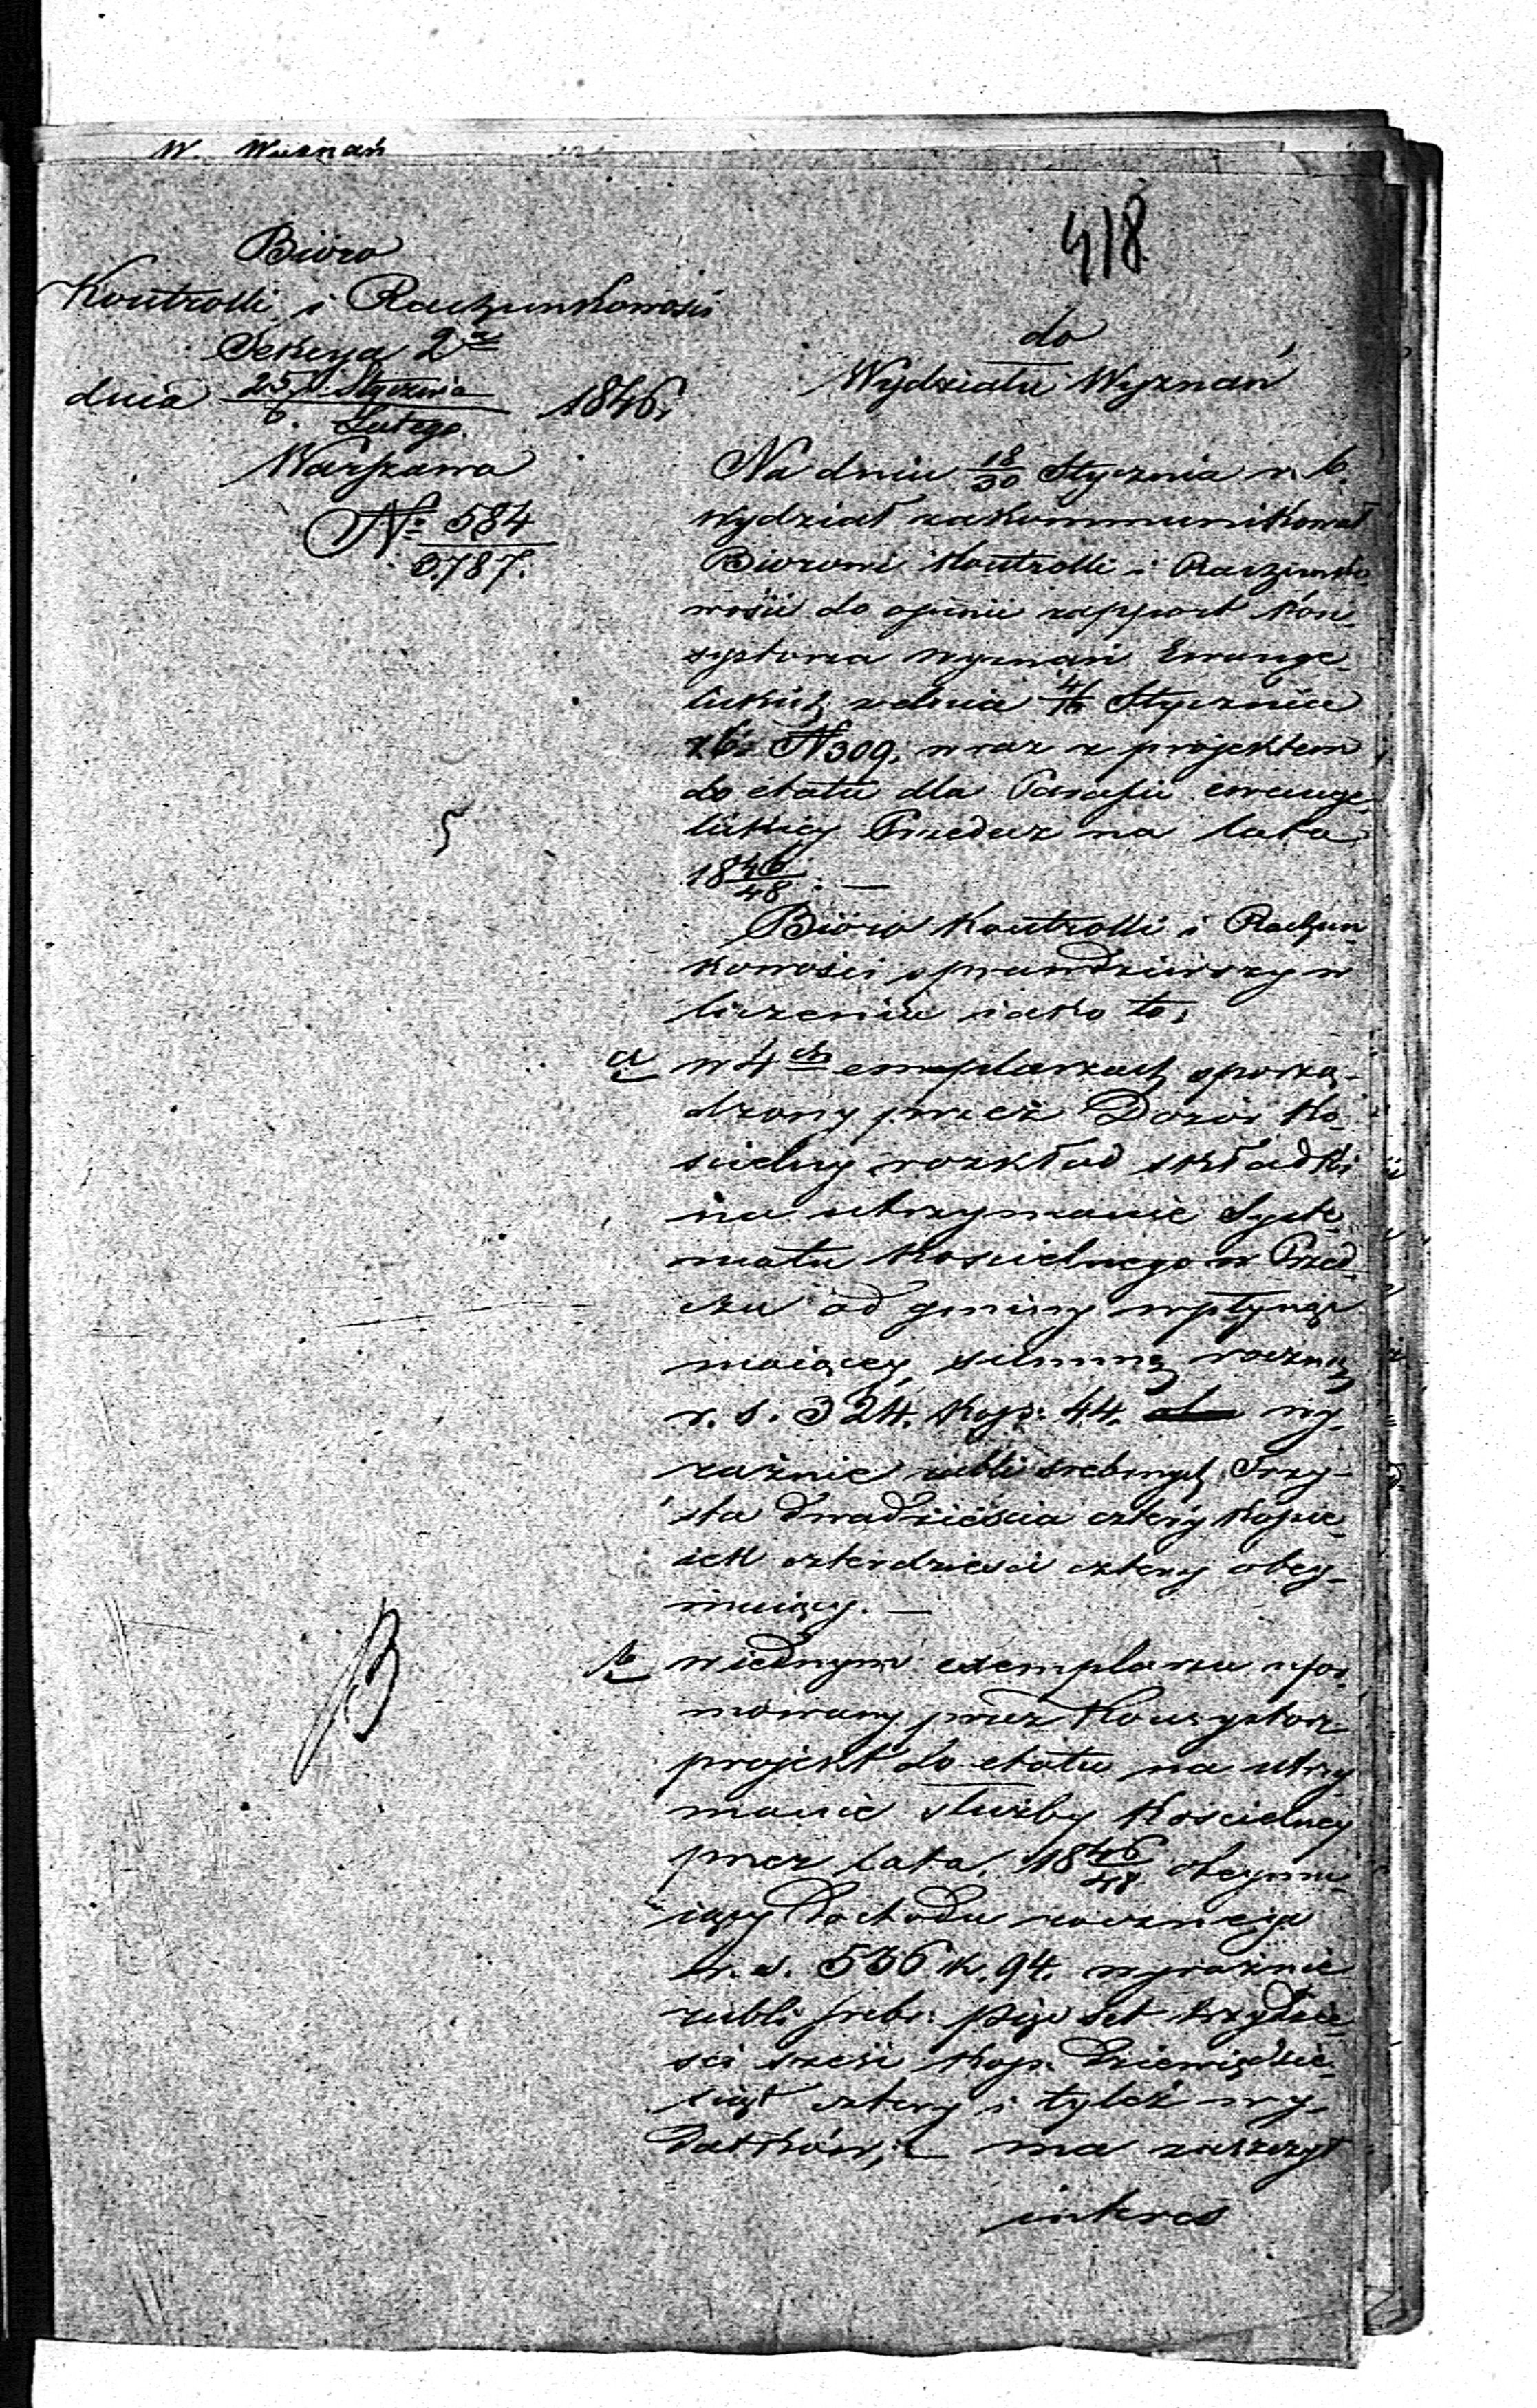 W. Wyznań
418
Bióro
Kontrolli i Rachunkowości
Sekcya 2a
dnia 25 Stycznia / 6. Lutego 1846.
Warszawa
№ 584 / 3787.
do
Wydziału Wyznań
Na dniu 18/30 Stycznia r. b.
Wydział zakommunikował
Biorowi Kontrolli i Rachunko
wości do opinii rapport Kon
systorza wyznań Ewange
lickich z dnia 4/16 Stycznia
r. b. N 309, wraz z projektem
do etatu dla Parafii ewange
lickiey Przedecz na lata
1846/48. —
Bióro Kontrolli i Rachun
kowości sprawdziwszy w
liczeniu iako to,
a w 4ch exemplarzach sporzą-
dzony przez Dozór Ko
ścielny rozkład składki
na utrzymanie Syste
matu Kościelnego w Przed
czu od gminy wpłynąć
maiącey, summę roczną
r. s. 324. kop: 44. wy
raźnie rubli srebrnych Trzy-
sta dwadzieścia cztery kopie
iek czterdzieści cztery obey-
muiący. —
b w iednym exemplarzu ufor
mowany przez Konsystorz
projekt do etatu na utrzy
manie służby Kościelney
przez lata 1846/48 obeymu
iący Dochodu rocznego
r. s. 536 k. 94. wyraźnie
rubli srebr: pięć set trzydzie
ści sześć kop: Dziewięćdzie
siąt cztery i tyleż wy
datków, — ma zaszczyt